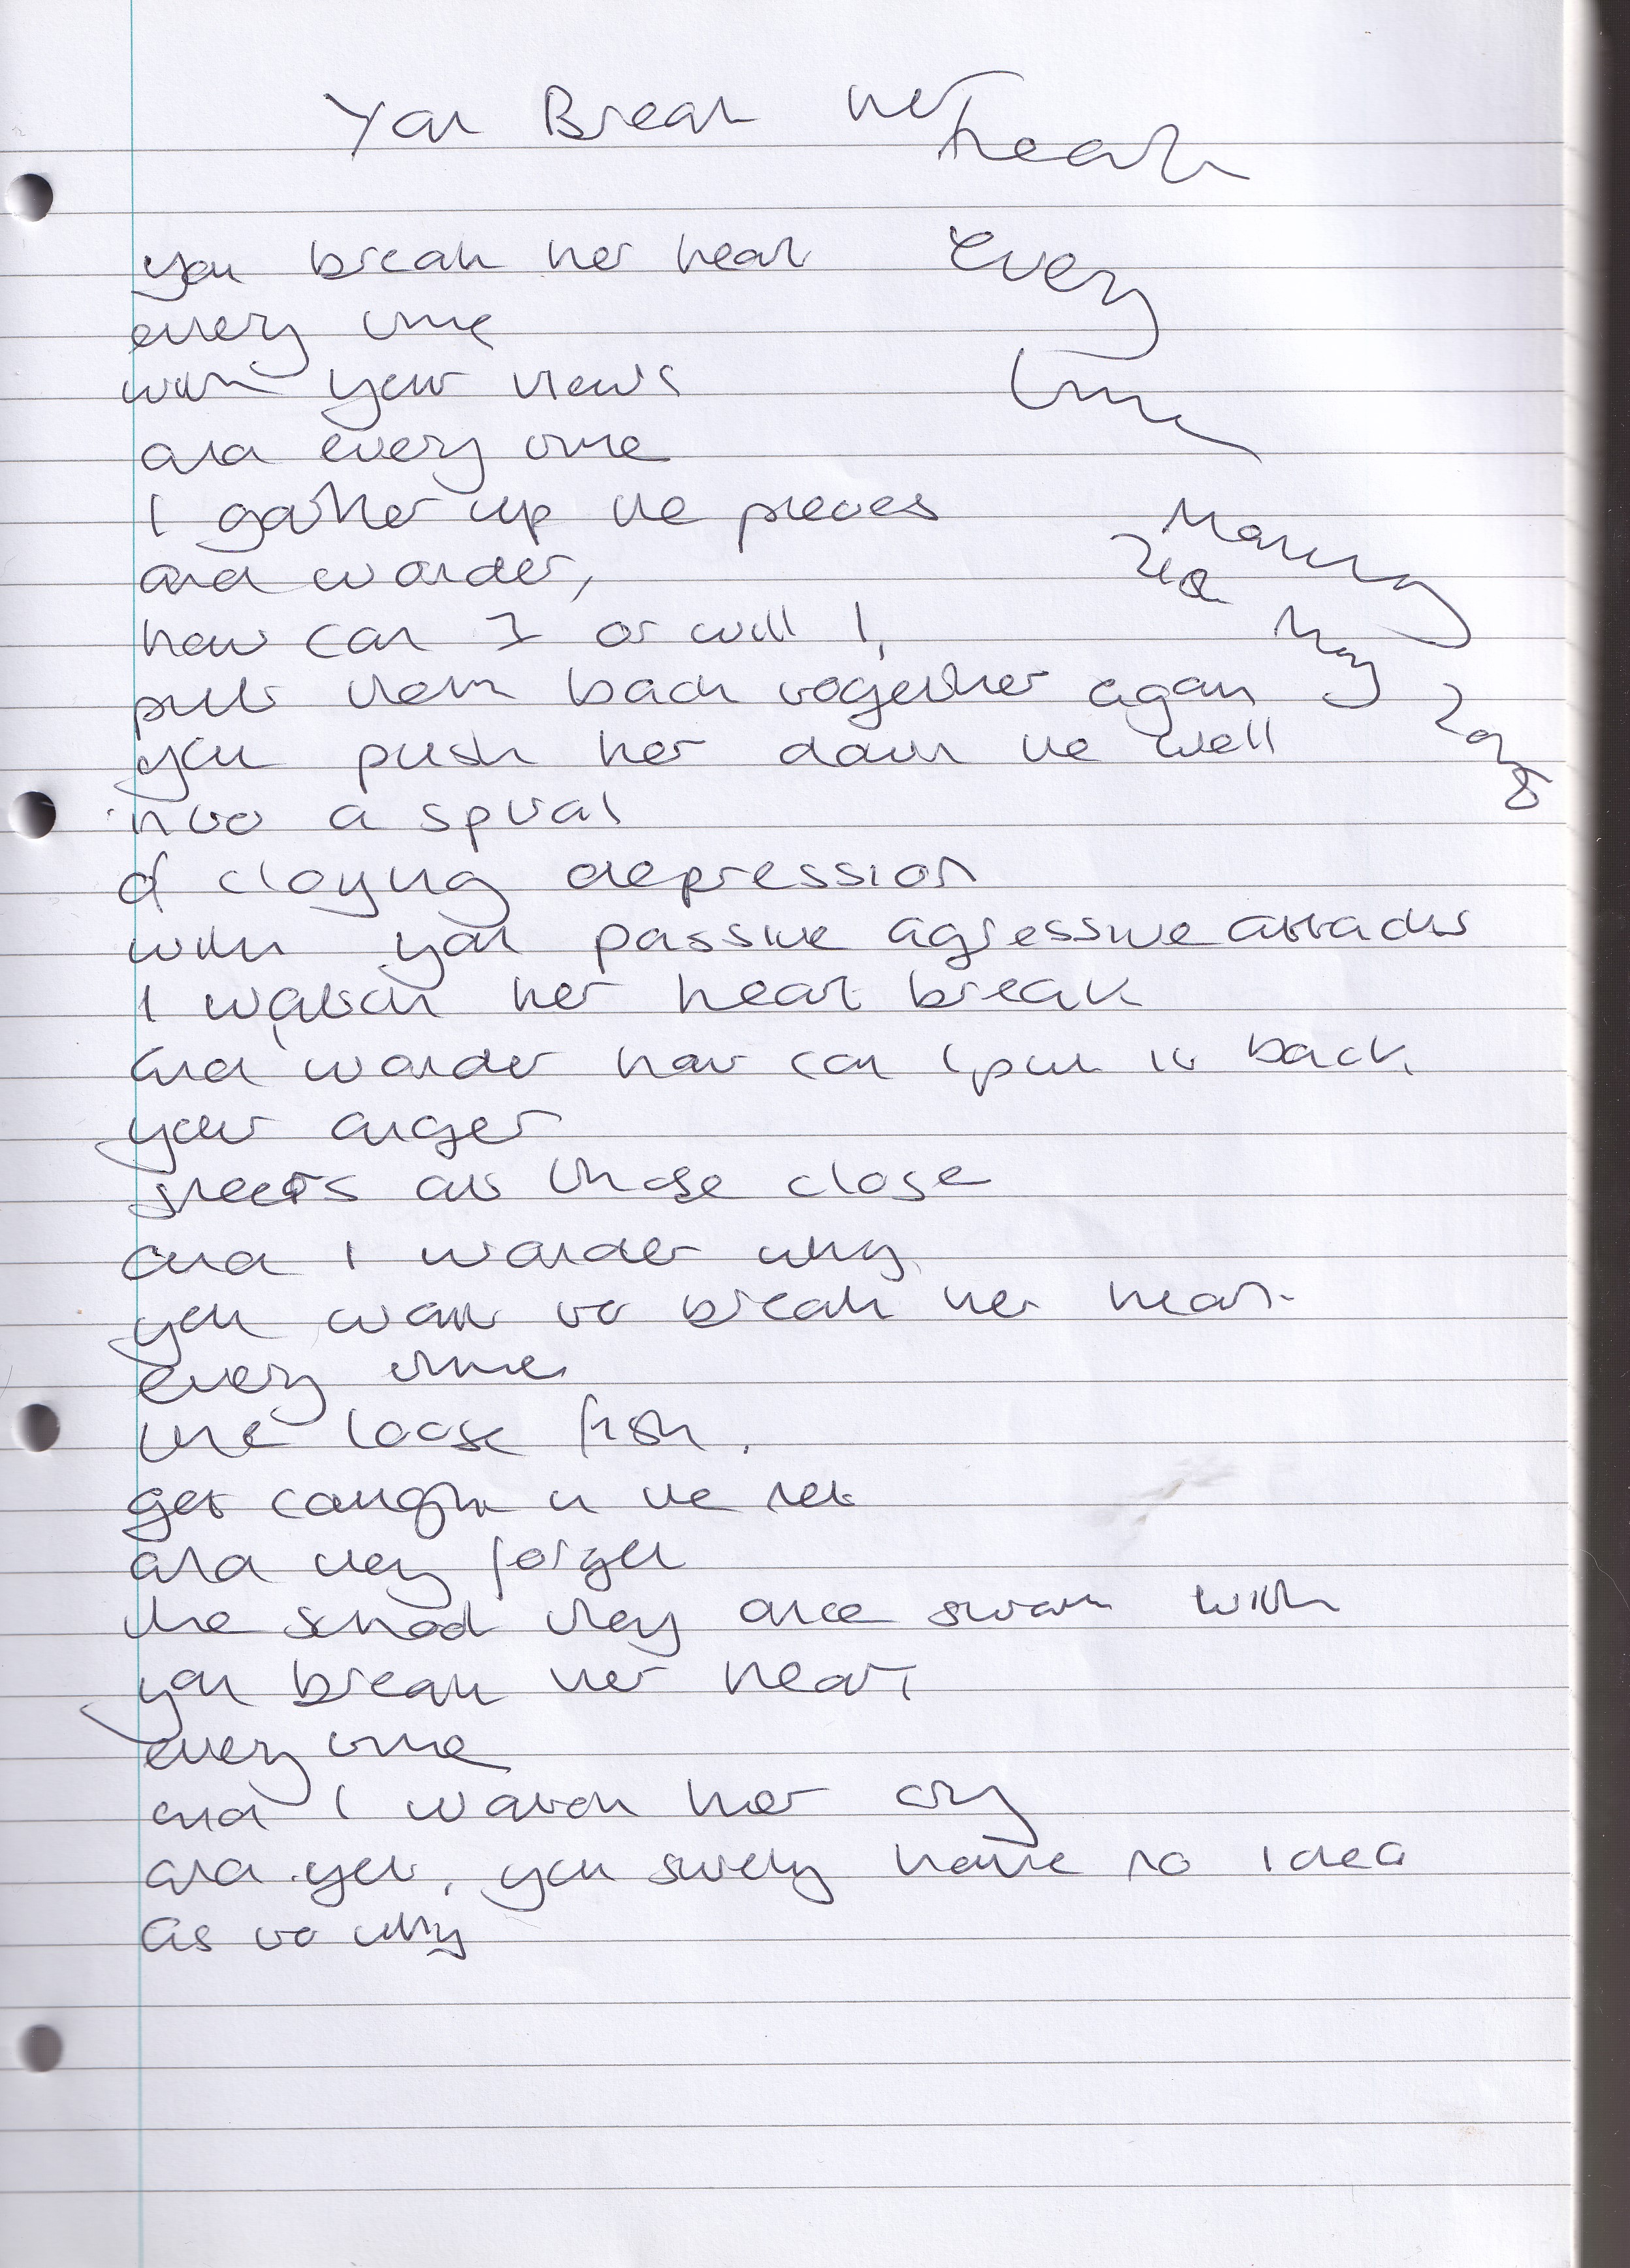 You Break her heart
every
time
Morning
2nd May 2018
you break her heart
every time
with your views
and every time
I gather up the pieces
and wonder,
how can I or will I,
put them back together again
you push her down the well
into a spiral
of cloying depression
with your passive agressive attacks
I watch her heart break
and wonder how can I put it back
your anger
at those close
and I wonder why
you want to break her heart
every time
the loose fish.
get caught in the net
and they forget
the school they once swam with
you break her heart
every time
and I watch her cry
and yet, you surely have no idea
as to why